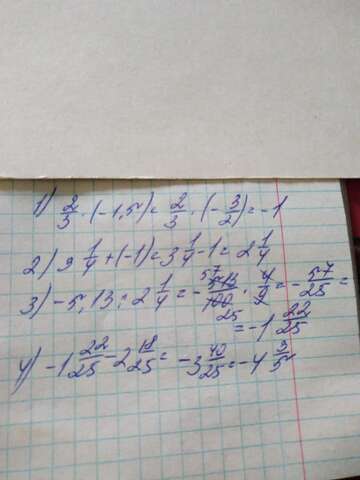 1) 2/3 · (-1,5) = 2/3 · (-3/2) = -1
2) 3 1/4 + (-1) = 3 1/4 - 1 = 2 1/4
3) -5,13 : 2 1/4 = - 513/100 · 4/9 = - 57/25 =
57 25
= -1 22/25
4) -1 22/25 - 2 18/25 = -3 40/25 = -4 3/5